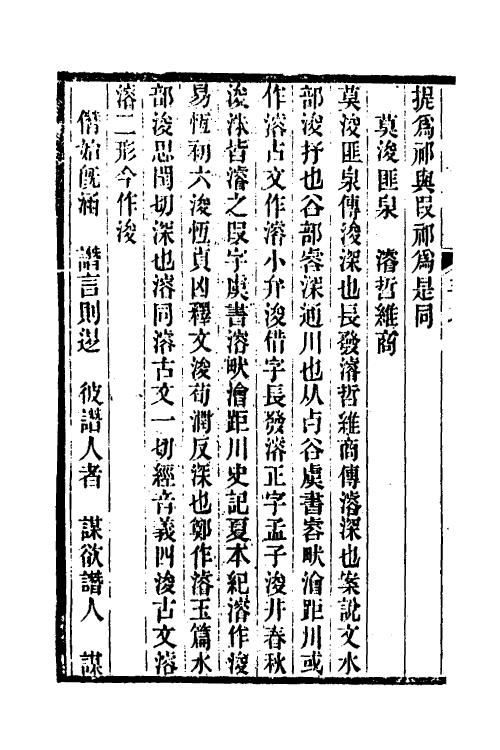 提爲祁與叚祁爲是同
莫浚匪泉　濬哲維商
莫浚匪泉傳浚深也長發濬哲維商傳濬深也案說文水
部浚抒也谷部睿深通川也从占谷虞書睿畎澮距川或
作濬古文作濬小弁浚借字長發濬正字孟子浚井春秋
浚洙皆濬之叚字虞書濬畎澮距川史記夏本紀濬作浚
易恆初六浚恆貞凶釋文浚荀潤反深也鄭作濬玉篇水
部浚思閏切深也濬同濬古文一切經音義四浚古文濬
濬二形今作浚
僭始旣涵　譖言則退　彼譖人者　謀欲譖人　謀